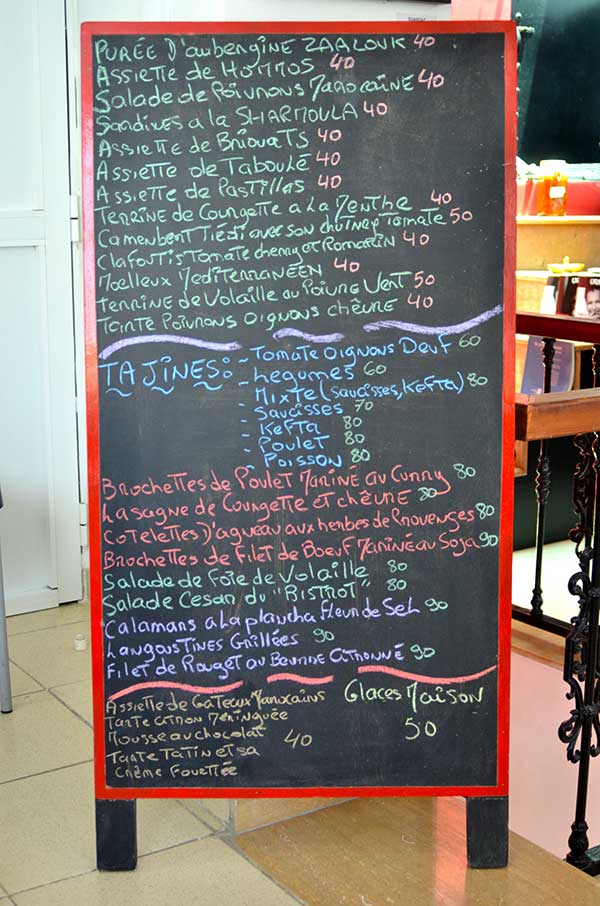 PURÉE D'aubergine ZAALOUK 40
Assiette de HOMMOS 40
Salade de Poivrons Marocaine 40
Sardines a la SHARMOULA 40
Assiette de BriouaTs 40
Assiette de Taboulé 40
Assiette de Pastillas 40
Terrine de Courgette a la Menthe 40
Camembert Tiédi avec son chutney Tomate 50
Clafoutis Tomate cherry et Romarin 40
Moelleux Mediterranéen 40
Terrine de Volaille au Poivre Vert 50
Tarte Poivrons Oignons chèvre 40
TAJINES: - Tomate Oignons Oeuf 60
- Legumes 60
- Mixte (Saucisses, Kefta) 80
- Saucisses 70
- Kefta 80
- Poulet 80
- Poisson 80
Brochettes de Poulet Mariné au Curry 80
Lasagne de Courgette et chèvre 80
Cotelettes D'agneau aux herbes de Provenges 80
Brochettes de Filet de Boeuf Mariné au Soja 90
Salade de Foie de Volaille 80
Salade Cesar du "Bistrot" 80
Calamars a la plancha Fleur de Sel 90
Langoustines Grillées 90
Filet de Rouget au Beurre Citronné 90
Assiette de Gateaux Marocains
Tarte citron Meringuée
Mousse au chocolat 40
Tarte Tatin et sa
Crème Fouettée
Glaces Maison
50